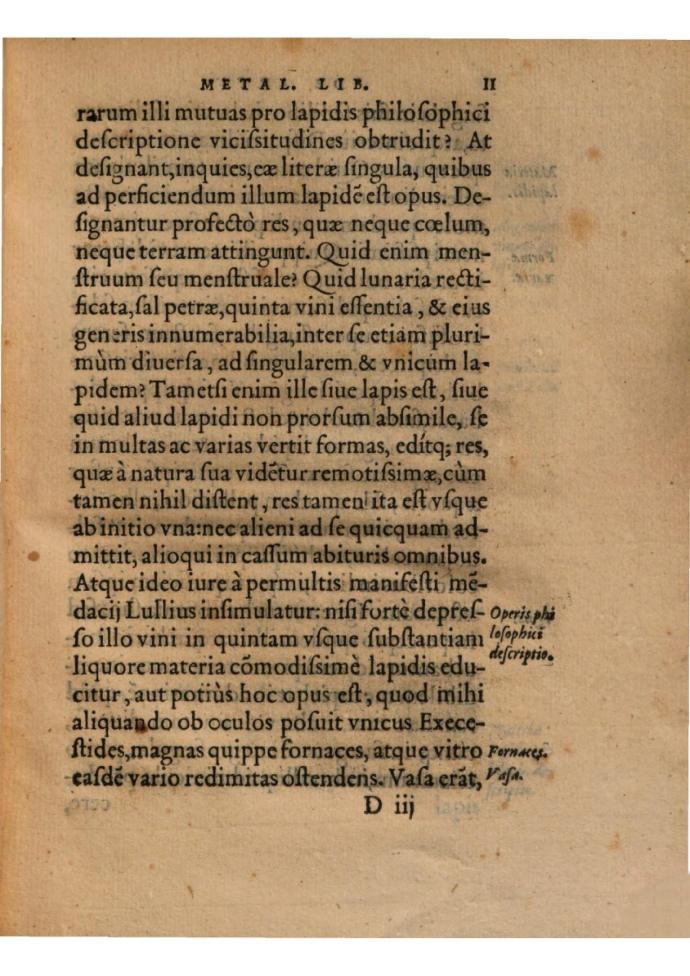 METAL. LIB. II
rarum illi mutuas pro lapidis philosophici
deſcriptione viciſsitudines obtrudit? At
deſignant, inquies, eæ literæ ſingula, quibus
ad perficiendum illum lapidē eſt opus. De-
ſignantur profectò res, quæ neque cœlum,
neque terram attingunt. Quid enim men-
ſtruum ſeu menſtruale? Quid lunaria recti-
ficata, ſal petræ, quinta vini eſſentia, & eius
generis innumerabilia, inter ſe etiam pluri-
mùm diuerſa, ad ſingularem & vnicum la-
pidem? Tametſi enim ille ſiue lapis eſt, ſiue
quid aliud lapidi non prorſum abſimile, ſe
in multas ac varias vertit formas, edítq; res,
quæ à natura ſua vidētur remotiſsimæ, cùm
tamen nihil diſtent, res tamen ita eſt vſque
ab initio vna: nec alieni ad ſe quicquam ad-
mittit, alioqui in caſſum abituris omnibus.
Atque ideo iure à permultis manifeſti mē-
dacij Lullius inſimulatur: niſi fortè depreſ-
ſo illo vini in quintam vſque ſubſtantiam
liquore materia cōmodiſsimè lapidis edu-
citur, aut potiùs hoc opus eſt, quod mihi
aliquando ob oculos poſuit vnicus Exece-
ſtides, magnas quippe fornaces, atque vitro
eaſdē vario redimitas oſtendens. Vaſa erāt,
D iij
Operis phi
loſophici
deſcriptio.
Fornaces.
Vaſa.